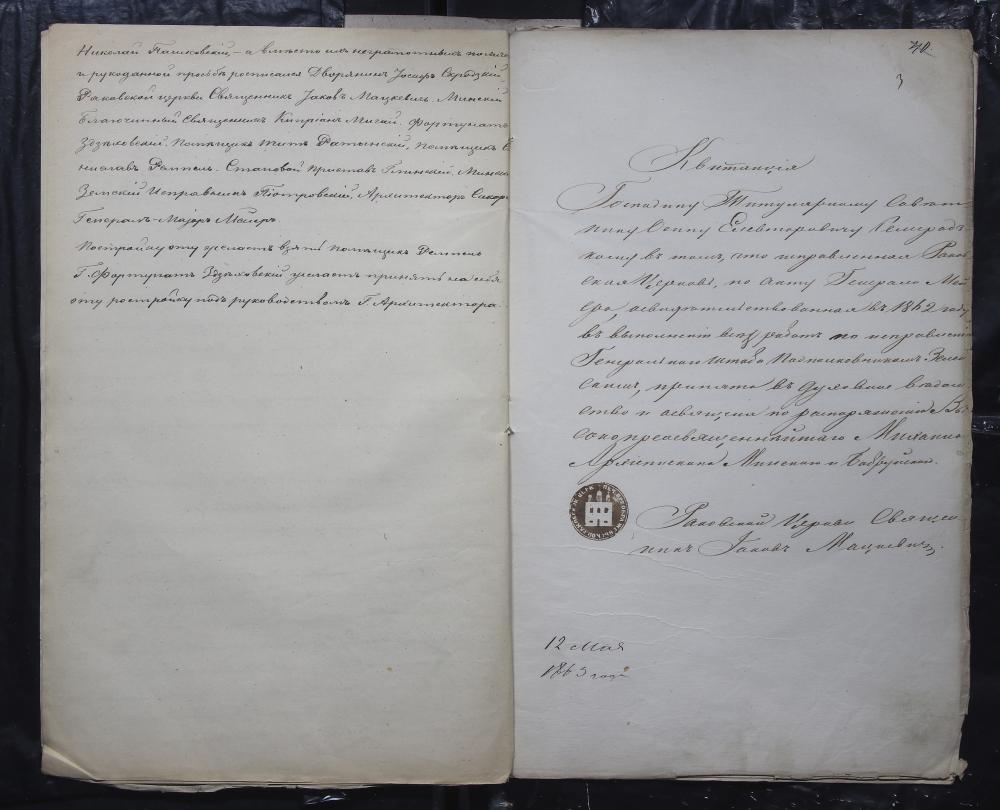 Николай Пашковскій, – а вмѣсто ихъ неграмотныхъ по личн
и рукоданной просьбѣ росписался Дворянинъ Іосифъ
Раковской церкви Священникъ Іаковъ Мацкевичъ. Минскій
Благочинный Священникъ Кипріанъ Фортунатъ
Здзѣховскій. Помѣщикъ Титъ Ратынскій, Помѣщикъ С
ниславъ Становой Приставъ Глинскій. Минск
Земскій Исправникъ Піотровскій, Архитекторъ
Генералъ-Маіоръ Мейеръ.
Постройку эту желаетъ взять помѣщикъ
Г. Фортунатъ Здзѣховскій желаетъ принять на себя
эту постройку подъ руководствомъ Г. Архитектора.
40
3
Квитанція
Господину Титулярному Совѣт
нику Осипу Елевтеровичу
кому въ томъ, что исправленная Раков
ская Церковь, по акту Генерала Мей
ера, освидѣтельствованная въ 1862 году
въ выполненіи всѣхъ работъ по исправленію
Генеральнаго штаба Подполковникомъ
принята въ духовное вѣдом
ство и освящена по распоряженію Вы
сокопреосвященнѣйшаго Михаила
Архіепископа Минскаго и Бобруйскаго.
Раковской Церкви Священ
никъ Іаковъ Мацкевичъ.
12 Мая
1863 года